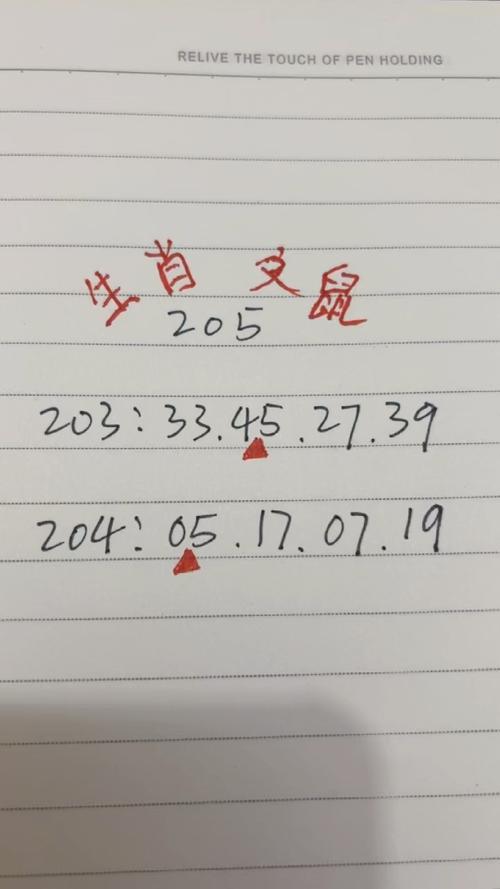 RELIVE THE TOUCH OF PEN HOLDING
生肖 文鼠
205
203:33.45.27.39
204:05.17.07.19